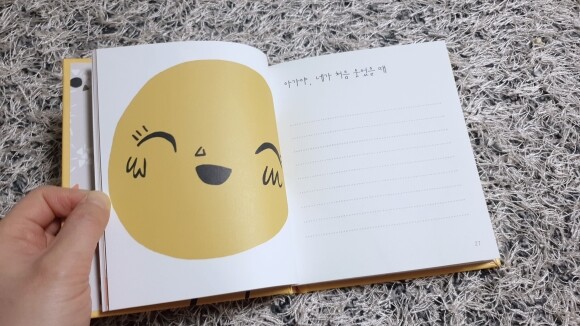 아가야, 네가 처음 웃었을 때
27